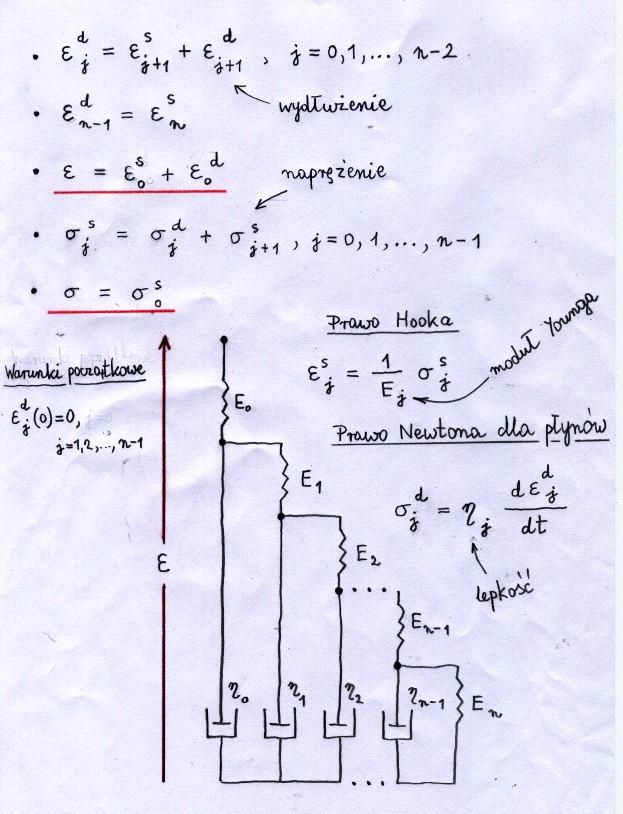 • ε_j^d = ε_{j+1}^s + ε_{j+1}^d , j = 0,1,..., n-2
wydłużenie
• ε_{n-1}^d = ε_n^s
• ε = ε_0^s + ε_0^d
naprężenie
• σ_j^s = σ_j^d + σ_{j+1}^s , j = 0, 1,..., n-1
• σ = σ_0^s
Prawo Hooka
moduł Younga
Warunki początkowe
ε_j^s = 1/E_j σ_j^s
ε_j^d(0)=0,
j=1,2,..., n-1
E_0
Prawo Newtona dla płynów
E_1
σ_j^d = η_j dε_j^d/dt
E_2
ε
lepkość
E_{n-1}
η_0 η_1 η_2 η_{n-1} E_n